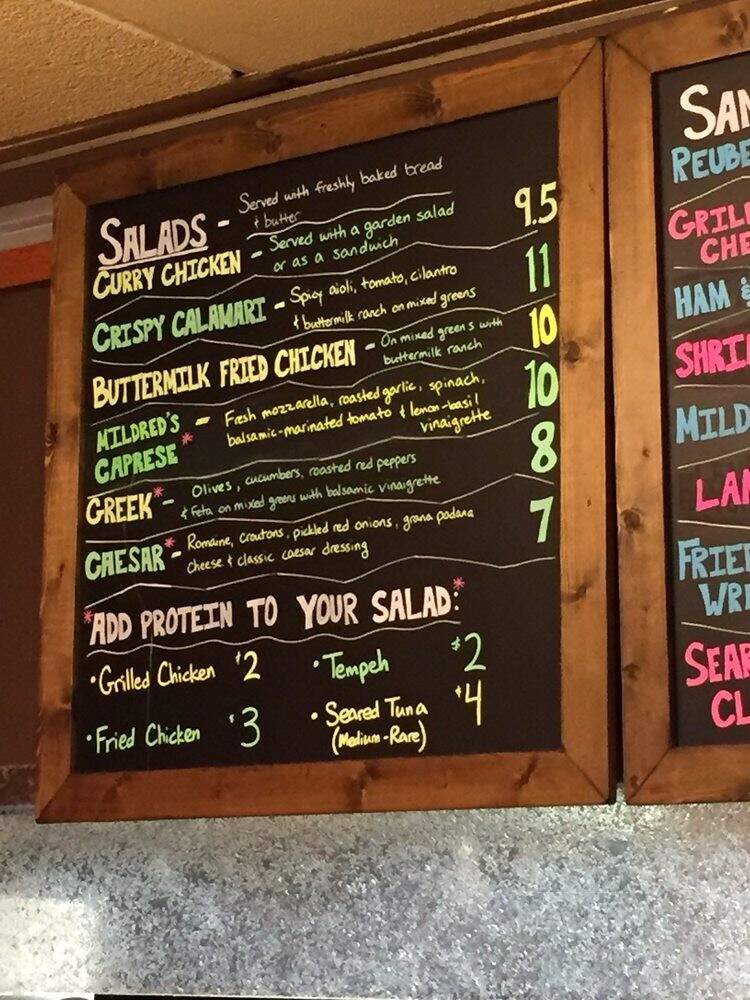 SALADS - Served with freshly baked bread
& butter
CURRY CHICKEN - Served with a garden salad 9.5
or as a sandwich
CRISPY CALAMARI - Spicy aioli, tomato, cilantro 11
& buttermilk ranch on mixed greens
BUTTERMILK FRIED CHICKEN - On mixed greens with 10
buttermilk ranch
MILDRED'S CAPRESE* - Fresh mozzarella, roasted garlic, spinach, 10
balsamic-marinated tomato & lemon-basil
vinaigrette
GREEK* - Olives, cucumbers, roasted red peppers 8
& feta on mixed greens with balsamic vinaigrette
CAESAR* - Romaine, croutons, pickled red onions, grana padana 7
cheese & classic caesar dressing
*ADD PROTEIN TO YOUR SALAD:*
•Grilled Chicken $2 •Tempeh $2
•Fried Chicken $3 •Seared Tuna $4
(Medium-Rare)
SAN
REUBE
GRILL
CHE
HAM &
SHRI
MILD
LAM
FRIE
WR
SEAR
CL